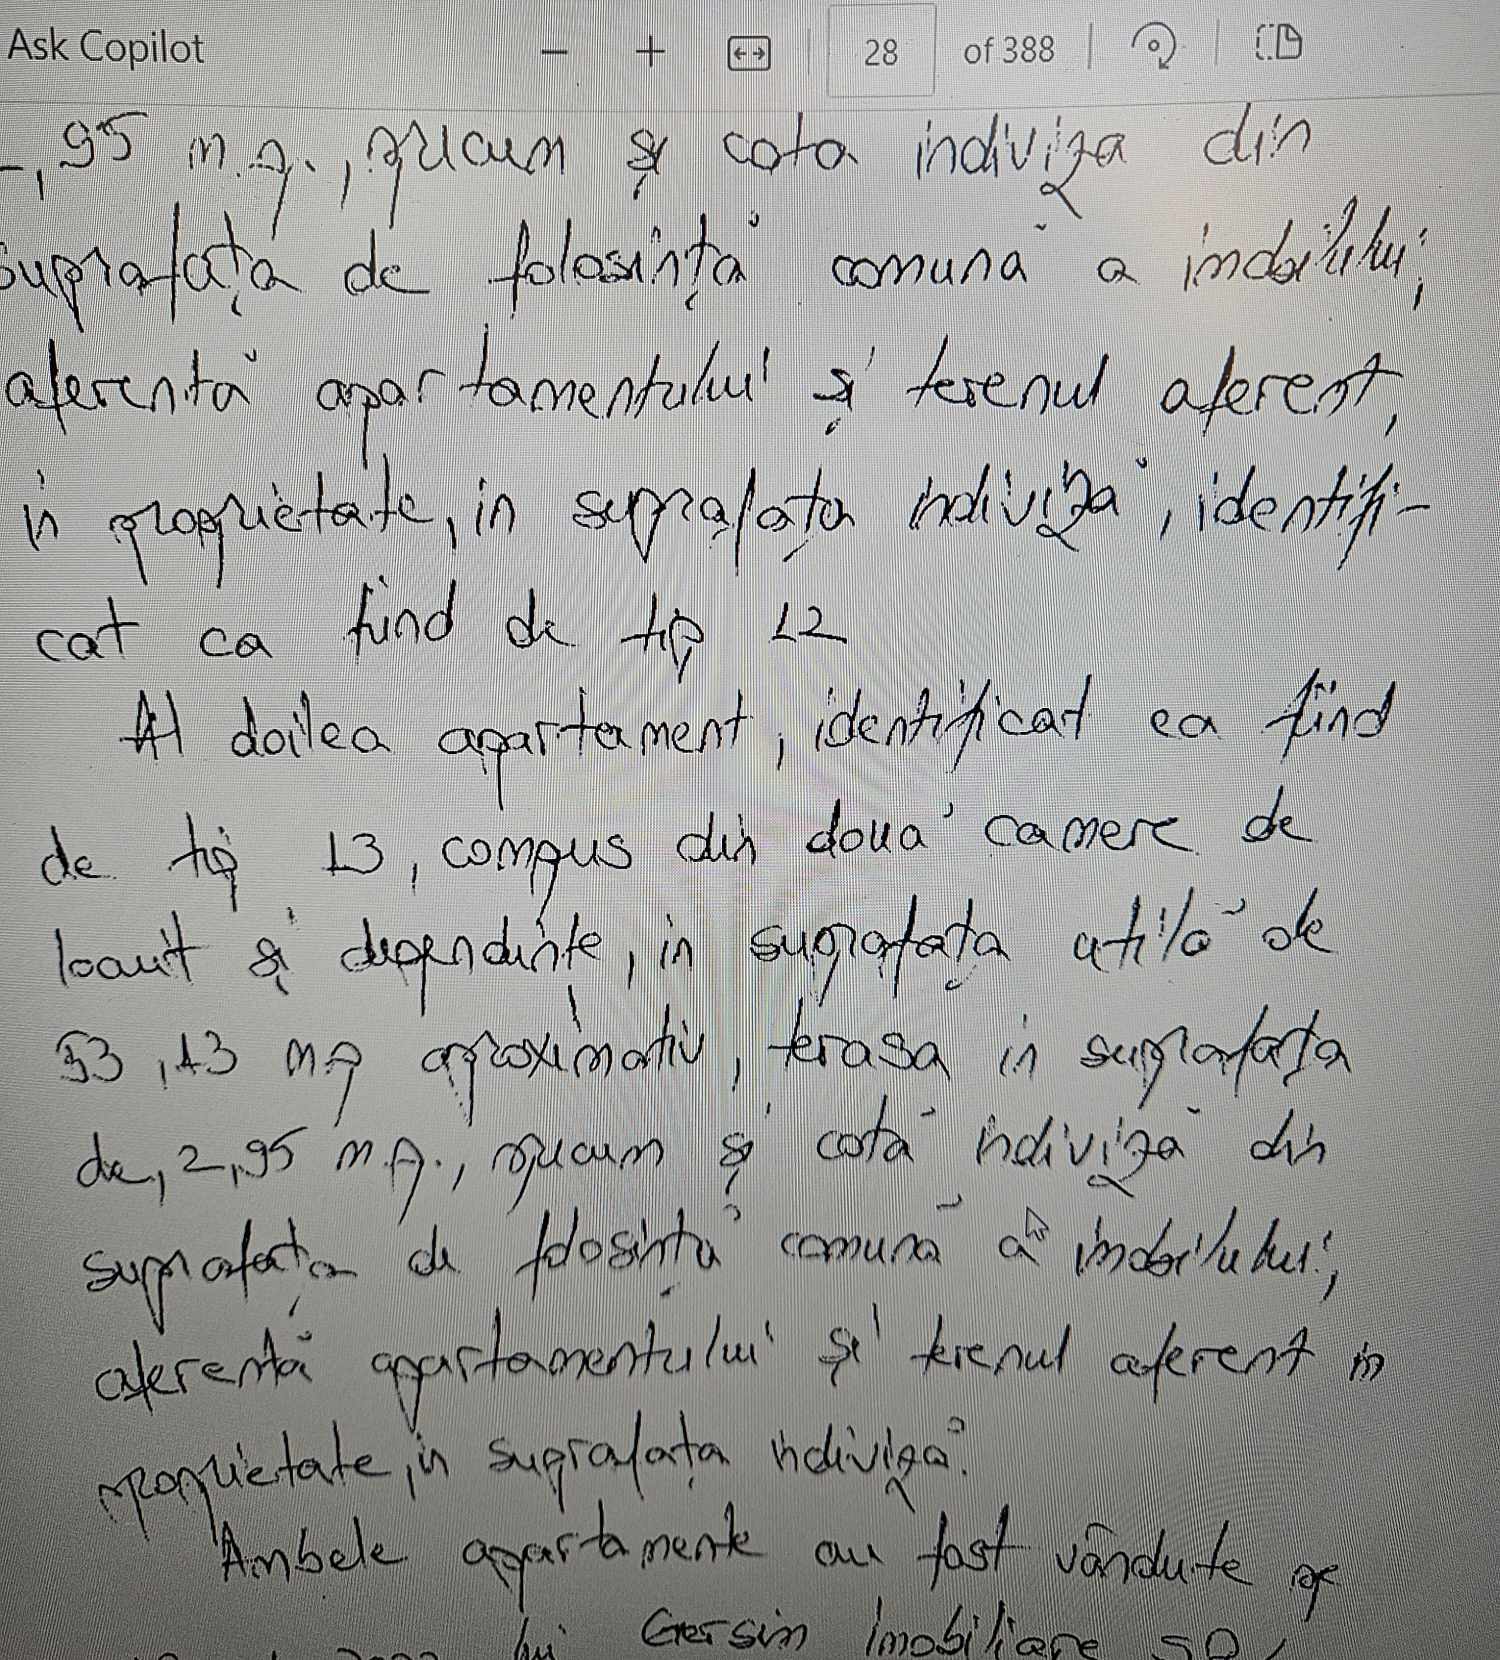 Ask Copilot 28 of 388
,95 m.p., precum și cota indiviza din
suprafața de folosință comună a imobilului,
aferentă apartamentului și terenul aferent,
in proprietate, in suprafața indiviză, identifi-
cat ca fiind de tip 12
Al doilea apartament, identificat ca fiind
de tip 13, compus din două camere de
locuit și dependințe, in suprafața utilă de
53,13 mp aproximativ, terasa in suprafața
de, 2,95 m.p., precum și cotă indiviză din
suprafața de folosință comună a imobilului,
aferentă apartamentului și terenul aferent in
proprietate, in suprafața indiviză.
Ambele apartamente au fost vândute pe
lui Gersim Imobiliare